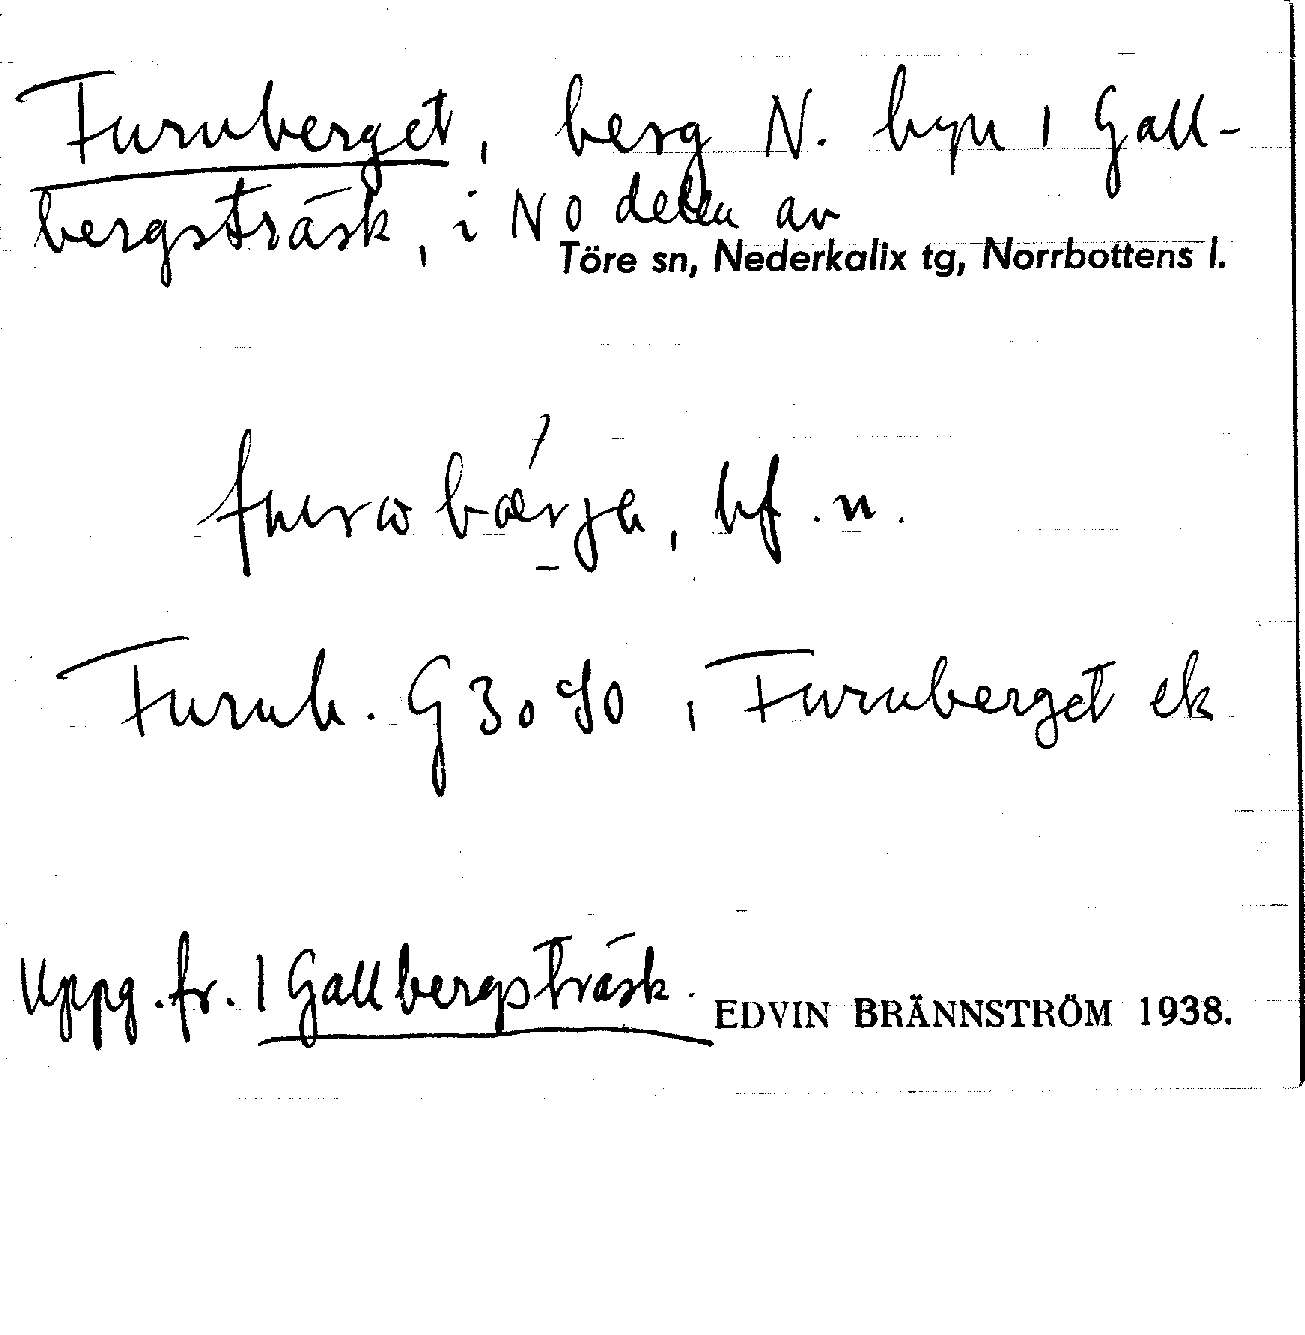 Furuberget, berg N. byn 1 Gall-
bergsträsk, i NO delen av
Töre sn, Nederkalix tg, Norrbottens l.
bf. n.
Furub. G 30 90, Furuberget ek
Uppg. fr. 1 Gallbergsträsk. EDVIN BRÄNNSTRÖM 1938.